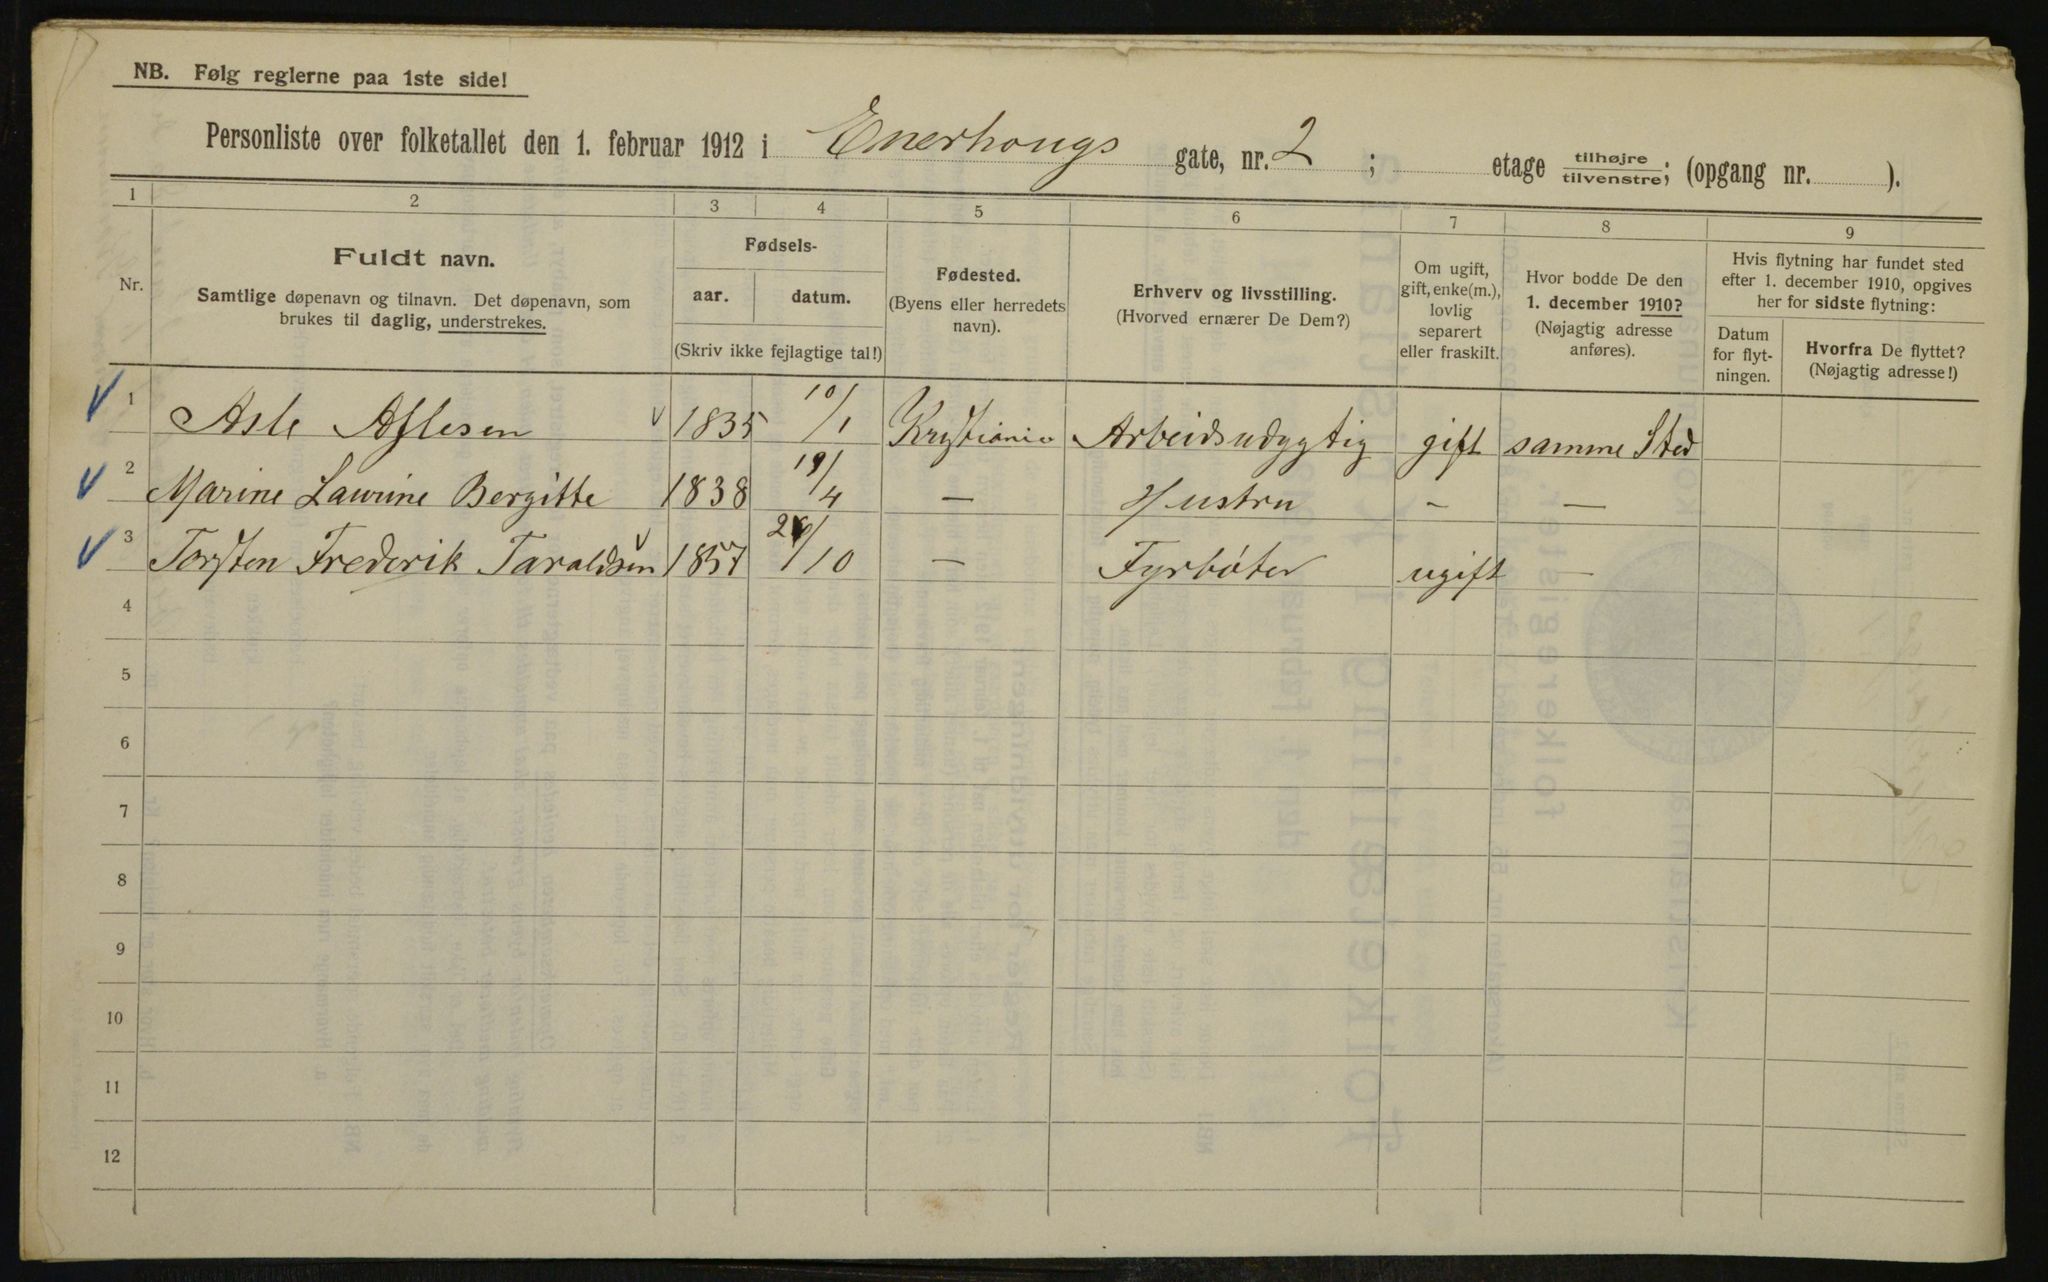 NB. Følg reglerne paa 1ste side!
Personliste over folketallet den 1. februar 1912 i Enerhougs gate, nr. 2 ; etage tilhøjre tilvenstre; (opgang nr. ).
1 2 3 4 5 6 7 8 9
Nr.
Fuldt navn.
Samtlige døpenavn og tilnavn. Det døpenavn, som
brukes til daglig, understrekes.
Fødsels-
aar. datum.
(Skriv ikke fejlagtige tal!)
Fødested.
(Byens eller herredets
navn).
Erhverv og livsstilling.
(Hvorved ernærer De Dem?)
Om ugift,
gift, enke(m.),
lovlig
separert
eller fraskilt.
Hvor bodde De den
1. december 1910?
(Nøjagtig adresse
anføres).
Hvis flytning har fundet sted
efter 1. december 1910, opgives
her for sidste flytning:
Datum
for flyt-
ningen.
Hvorfra De flyttet?
(Nøjagtig adresse!)
1 Asle Aslesen 1835 10/1 Kristiania Arbeidsudygtig gift samme Sted
2 Marine Laurine Bergitte 1838 19/4 — Hustru - —
3 Torsten Frederik Taraldsen 1857 26/10 — Fyrbøter ugift —
4
5
6
7
8
9
10
11
12